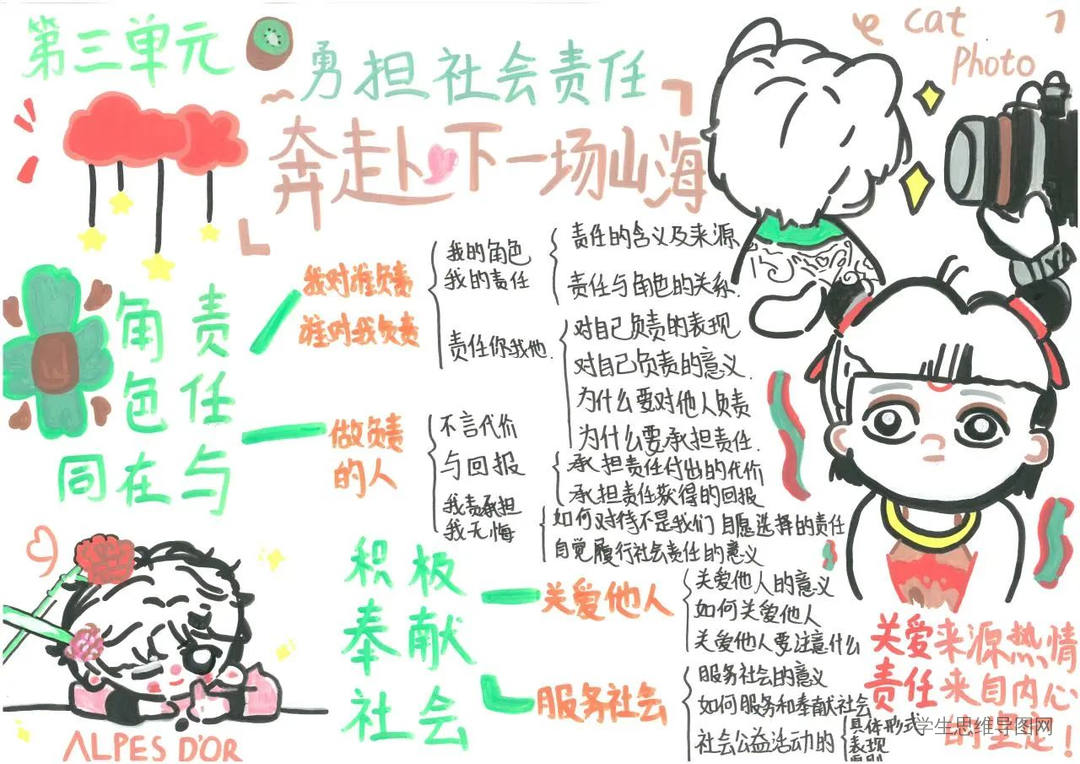 第三单元
勇担社会责任
奔走卜下一场山海
cat
Photo
责任与
角色同在
我对谁负责
谁对我负责
我的角色
我的责任
责任的含义及来源
责任与角色的关系.
责任你我他.
对自己负责的表现
对自己负责的意义.
为什么要对他人负责
为什么要承担责任.
做负责
的人
不言代价
与回报
承担责任付出的代价
承担责任获得的回报
我责承担
我无悔
如何对待不是我们自愿选择的责任
自觉履行社会责任的意义
积极
奉献
社会
关爱他人
关爱他人的意义
如何关爱他人
关爱他人要注意什么
服务社会
服务社会的意义
如何服务和奉献社会
社会公益活动的
具体形式
表现
关爱来源热情
责任来自内心
的坚定！
学生思维导图网
ALPES D'OR